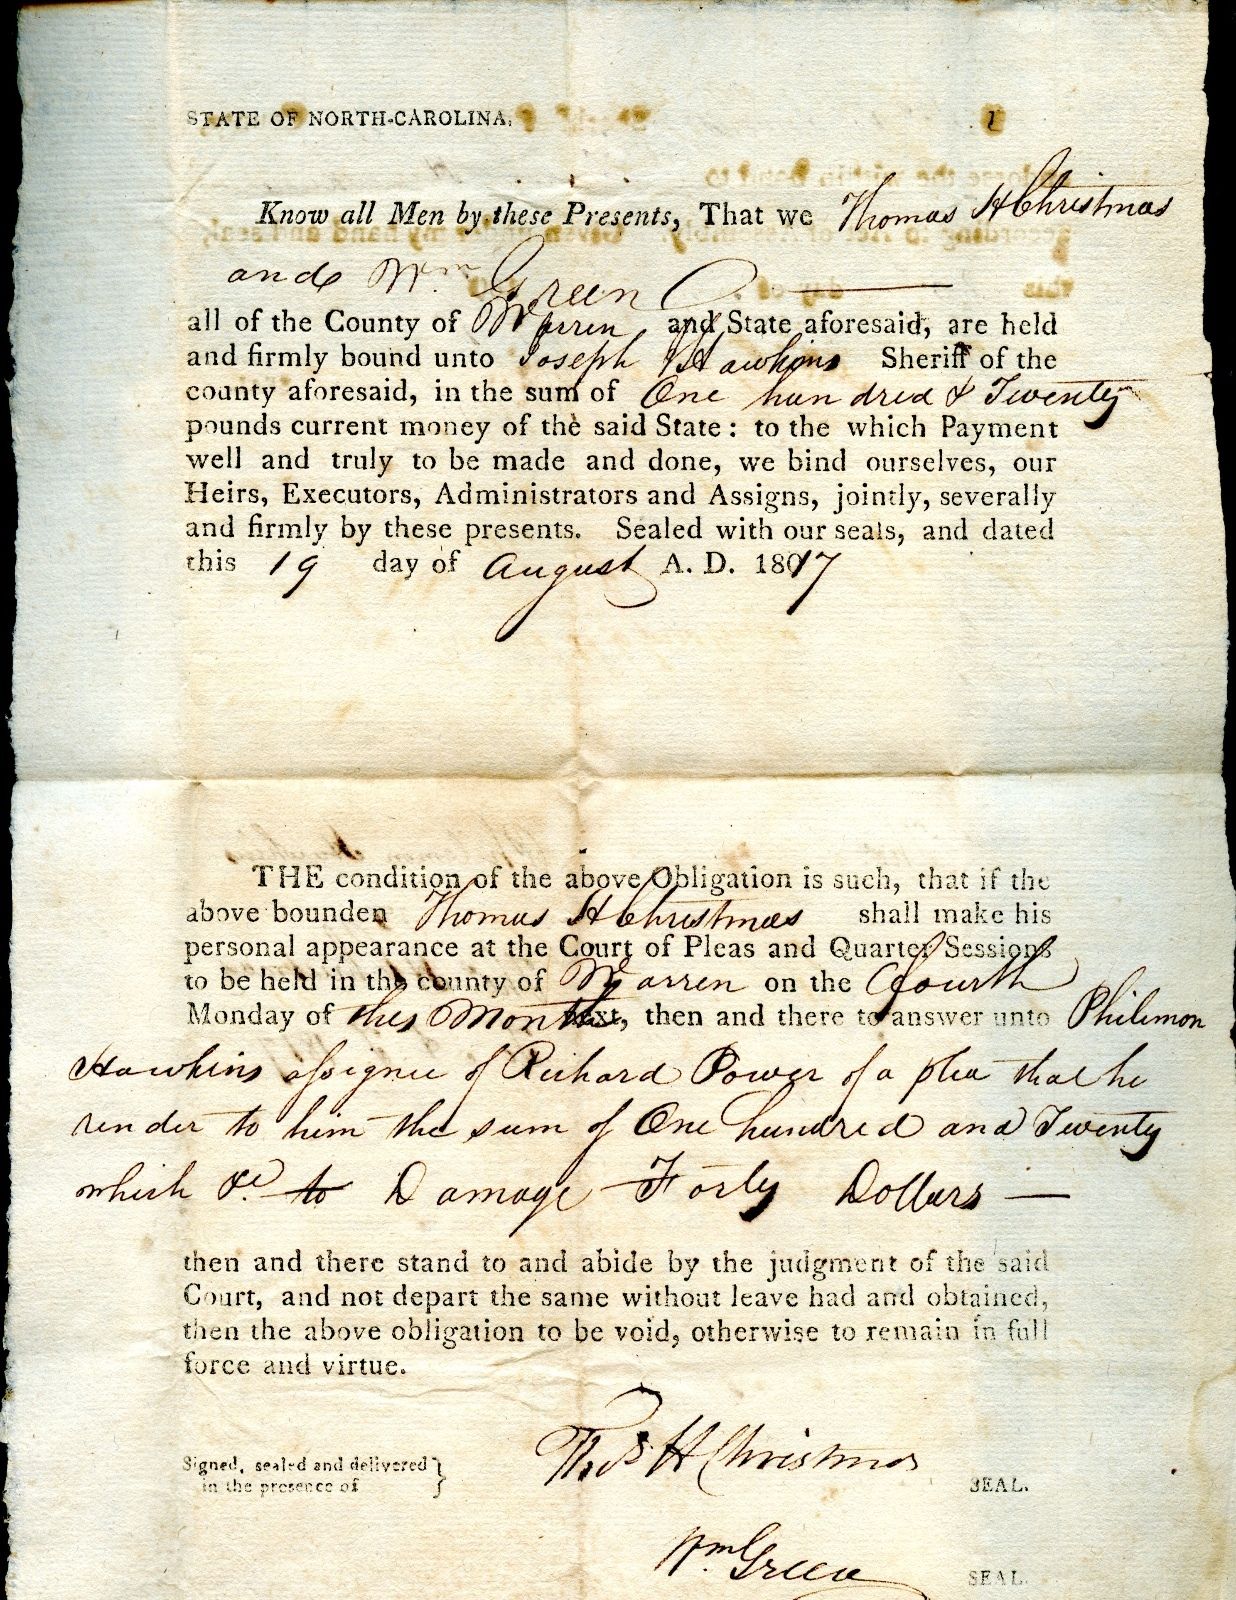 STATE OF NORTH-CAROLINA,
Know all Men by these Presents, That we Thomas H Christmas
and Wm Green
all of the County of Warren and State aforesaid, are held
and firmly bound unto Joseph Hawkins Sheriff of the
county aforesaid, in the sum of One hundred & Twenty
pounds current money of the said State: to the which Payment
well and truly to be made and done, we bind ourselves, our
Heirs, Executors, Administrators and Assigns, jointly, severally
and firmly by these presents. Sealed with our seals, and dated
this 19 day of August A. D. 1817
THE condition of the above Obligation is such, that if the
above bounden Thomas H Christmas shall make his
personal appearance at the Court of Pleas and Quarter Sessions
to be held in the county of Warren on the fourth
Monday of this Month next, then and there to answer unto Philemon
Hawkins assignee of Richard Power of a plea that he
render to him the sum of One hundred and Twenty
which &c. to Damage Forty Dollars
then and there stand to and abide by the judgment of the said
Court, and not depart the same without leave had and obtained,
then the above obligation to be void, otherwise to remain in full
force and virtue.
Signed, sealed and delivered
in the presence of
Thos H Christmas SEAL.
Wm Green SEAL.